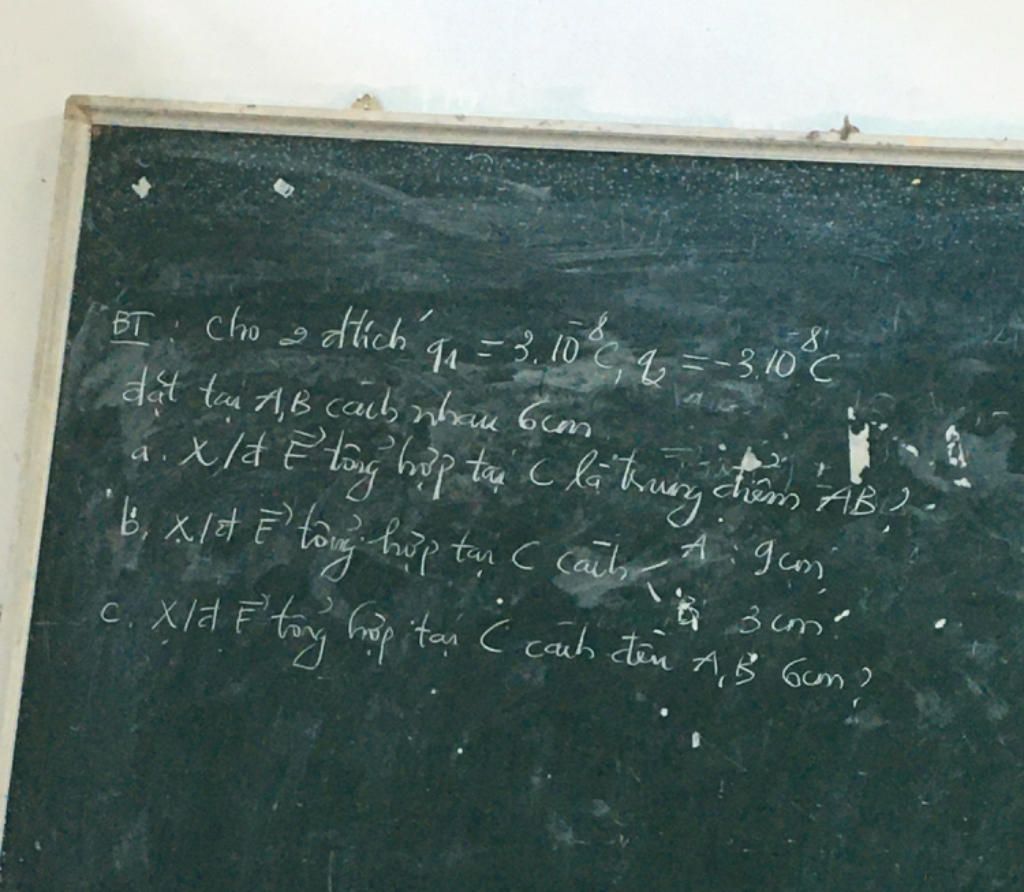 BT : cho 2 đtích q₁ = 3.10⁻⁸C, q₂ = -3.10⁻⁸C
đặt tại A,B cách nhau 6cm
a. X/đ E⃗ tổng hợp tại C là trung điểm AB?
b. X/đ E⃗ tổng hợp tại C cách A : 9cm
B 3cm
c. X/đ E⃗ tổng hợp tại C cách đến A,B 6cm?